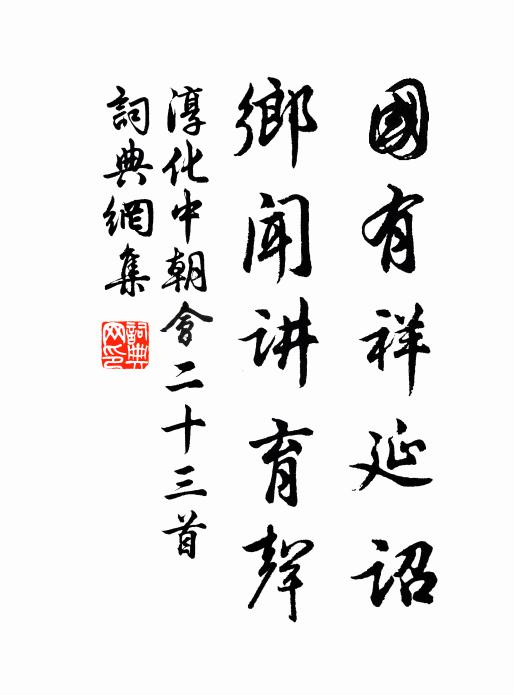 國有祥延詔
鄉聞讲育聲
淳化中朝會二十三首
詞典網集
詞典网印